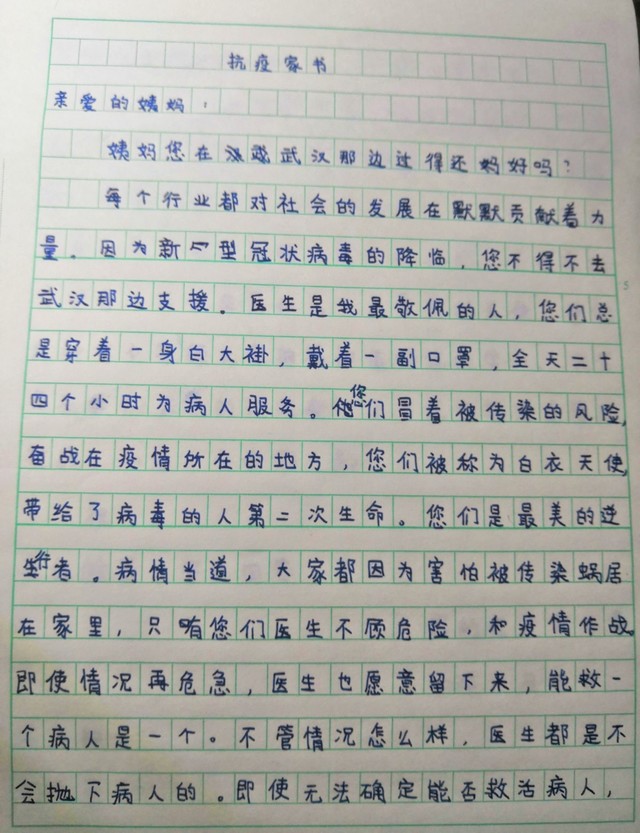 抗疫家书
亲爱的姨妈：
姨妈您在武汉那边过得还好吗？
每个行业都对社会的发展在默默贡献着力
量。因为新型冠状病毒的降临，您不得不去
武汉那边支援。医生是我最敬佩的人，您们总
是穿着一身白大褂，戴着一副口罩，全天二十
四个小时为病人服务。您们冒着被传染的风险，
奋战在疫情所在的地方，您们被称为白衣天使，
带给了病毒的人第二次生命。您们是最美的逆
行者。病情当道，大家都因为害怕被传染蜗居
在家里，只有您们医生不顾危险，和疫情作战。
即使情况再危急，医生也愿意留下来，能救一
个病人是一个。不管情况怎么样，医生都是不
会抛下病人的。即使无法确定能否救活病人，